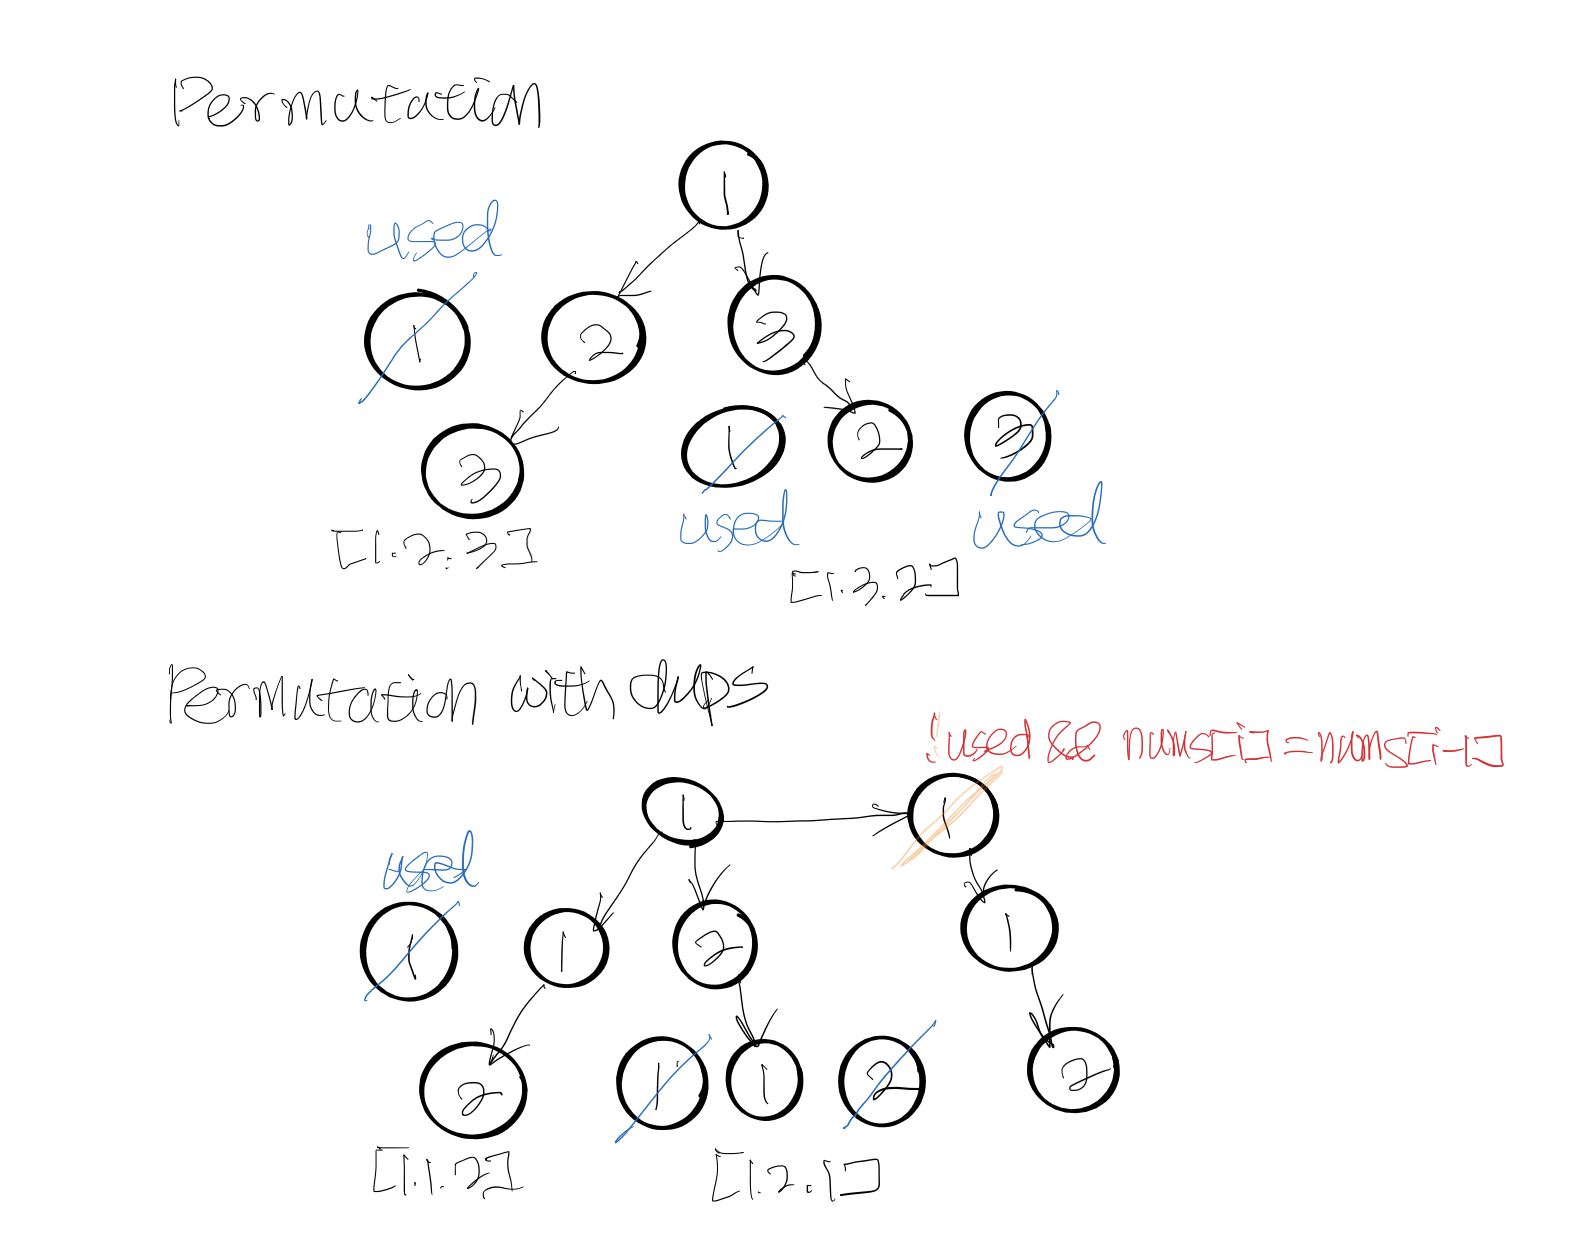 Permutation
1
used
1
2
3
1
2
3
3
used
used
[1.2.3]
[1.3.2]
Permutation with dups
!used && nums[i] = nums[i-1]
1
1
used
1
1
2
1
2
1
1
2
2
[1.1.2]
[1.2.1]